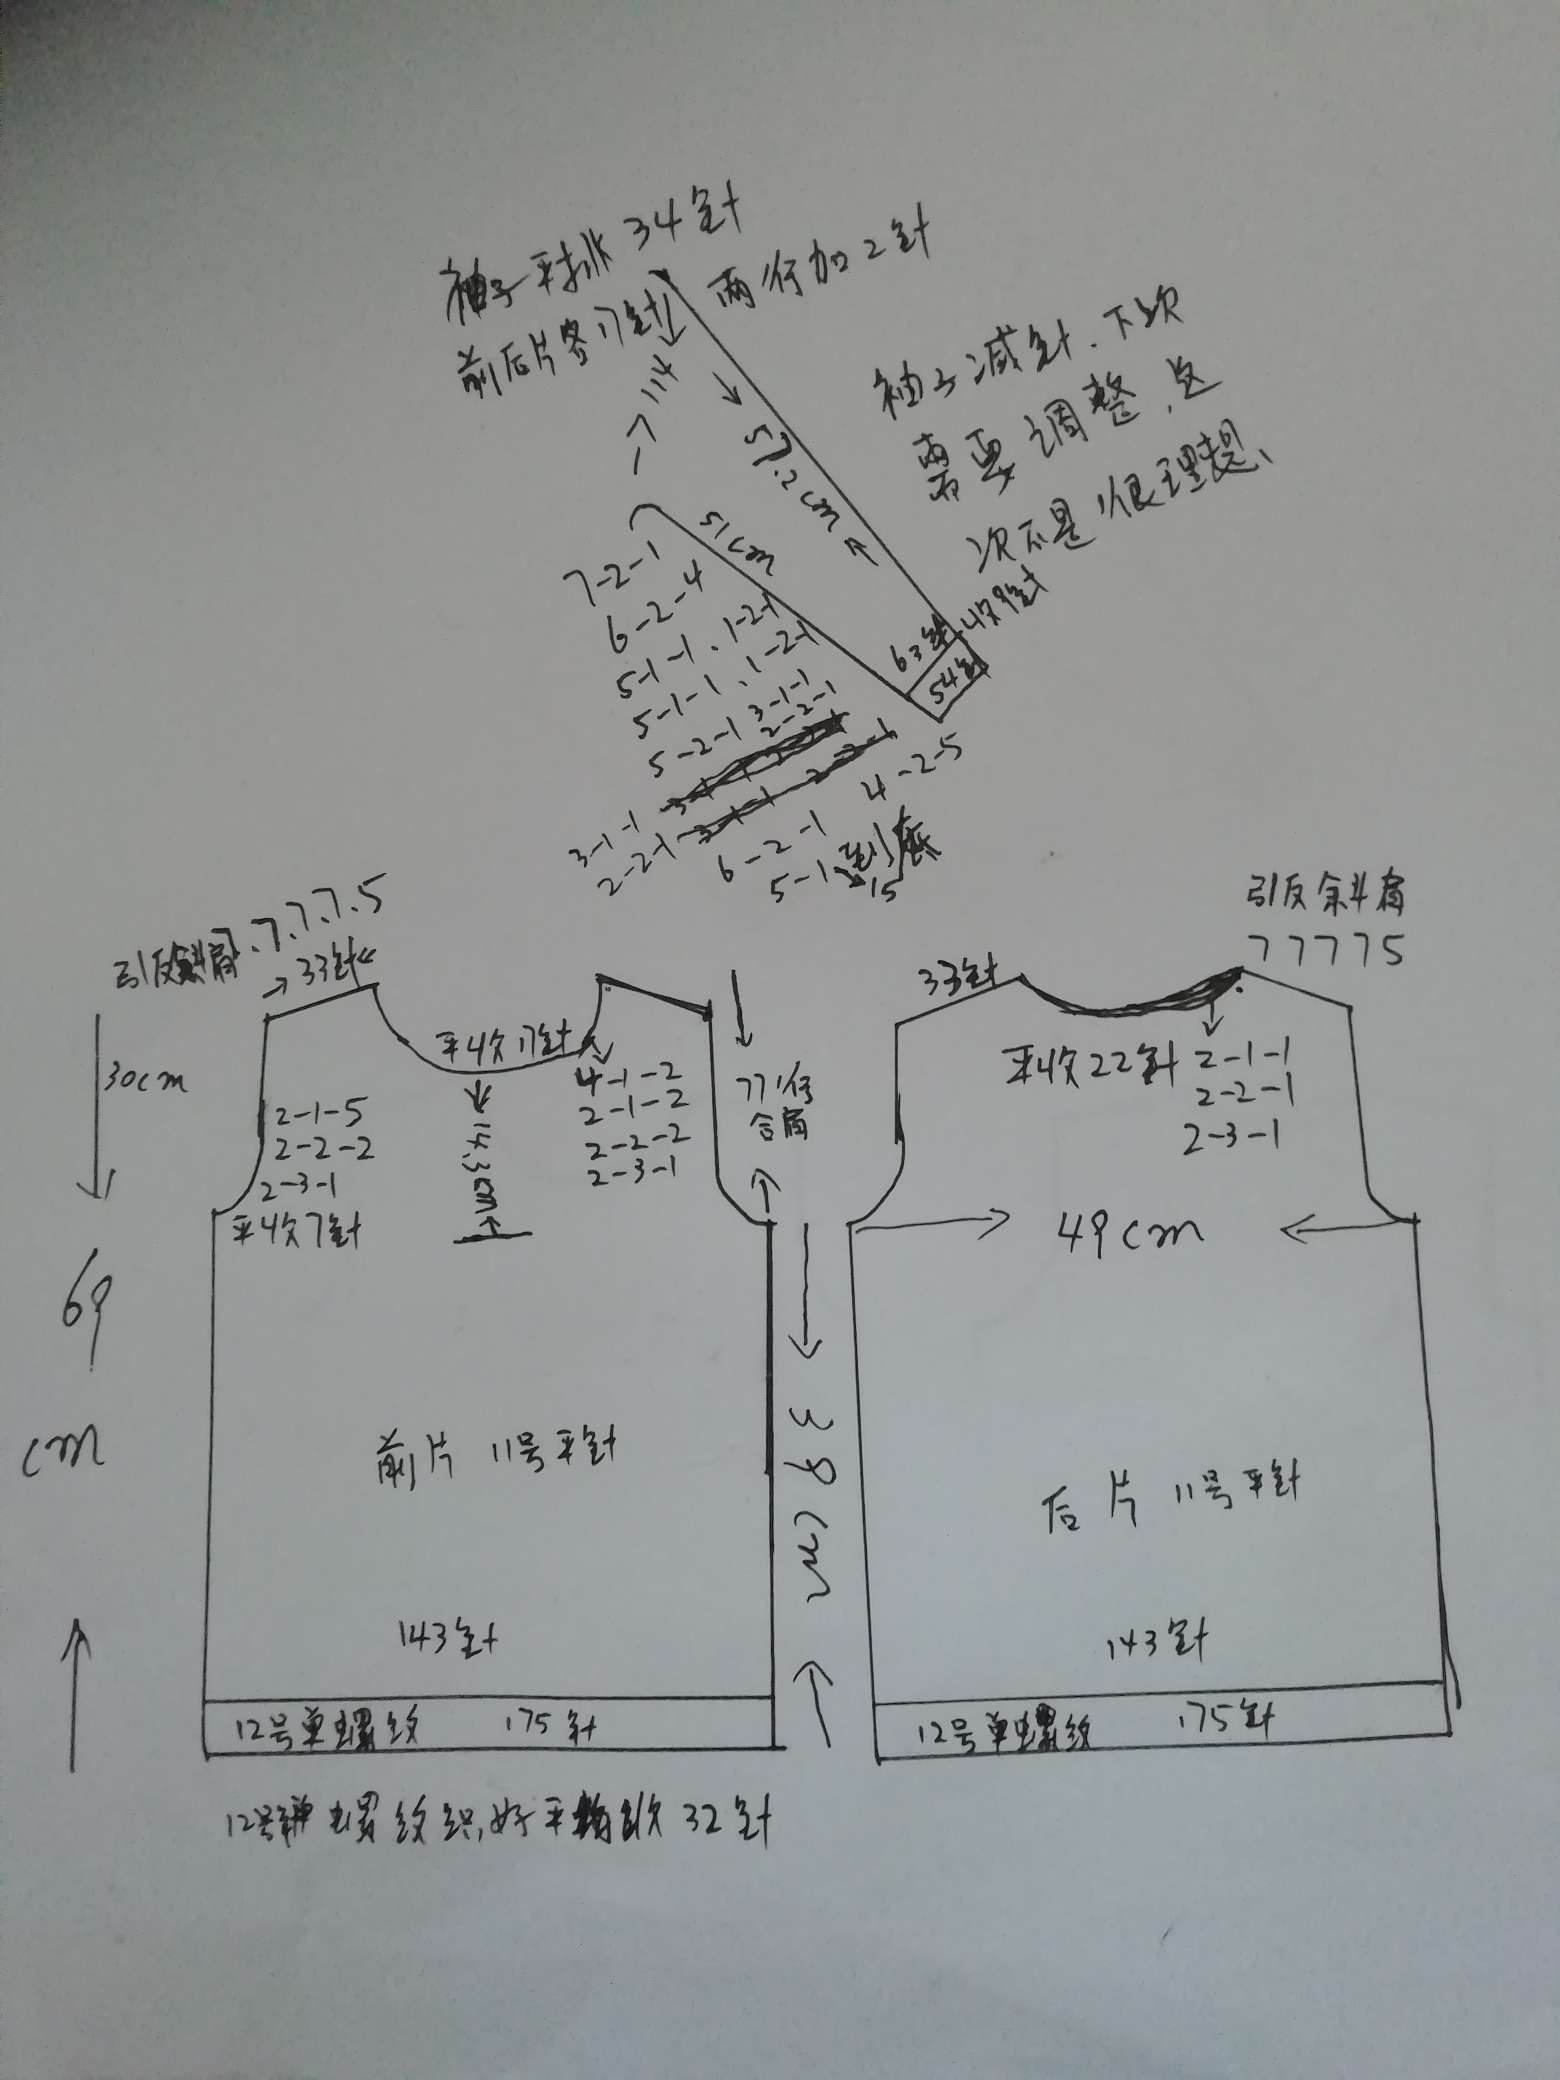 袖子平挑34针
前后片各17针
两行加2针
114
57.2cm
51cm
袖子减针.下次
需要调整,这
次不是很理想、
63针
收9针
54针
7-2-1
6-2-4
5-1-1、1-2-1
5-1-1、1-2-1
5-2-1 3-1-1
2-2-1
3-1-1
2-2-1
4-2-5
6-2-1
5-1到底
15
引反斜肩、7、7、7、5
33针
30cm
69
cm
平收17针
4-1-2
2-1-2
2-2-2
2-3-1
2-1-5
2-2-2
2-3-1
平收7针
14.3cm
77行
合肩
38cm
前片 11号平针
143针
12号单螺纹 175针
12号单螺纹织好平均收32针
引反斜肩
77775
33针
平收22针
2-1-1
2-2-1
2-3-1
49cm
后片 11号平针
143针
12号单螺纹 175针